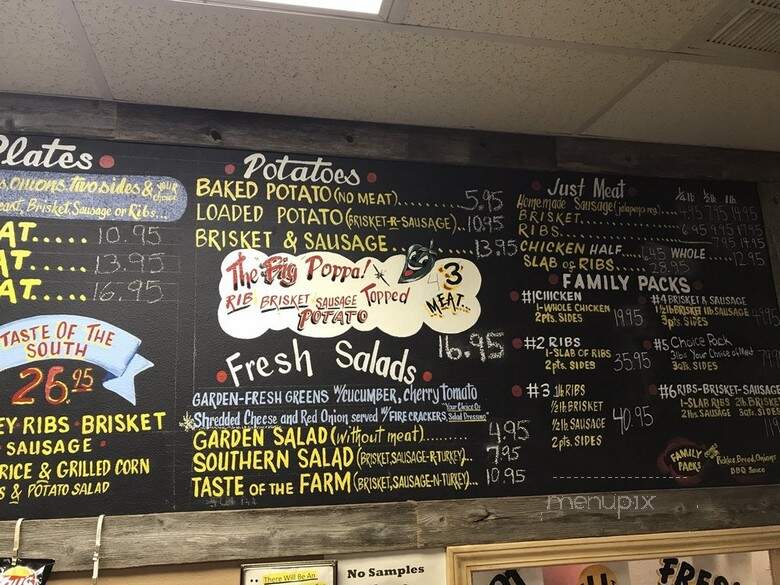 Plates
Onions, two sides & your choice
Brisket, Sausage or Ribs...
AT..... 10.95
AT..... 13.95
AT..... 16.95
TASTE OF THE
SOUTH
26.95
EY RIBS • BRISKET
SAUSAGE •
RICE & GRILLED CORN
S & POTATO SALAD
Potatoes
BAKED POTATO (NO MEAT)...... 5.95
LOADED POTATO (BRISKET-R-SAUSAGE).. 10.95
BRISKET & SAUSAGE......... 13.95
The Big Poppa!
3
MEAT
RIB BRISKET SAUSAGE Topped
POTATO
16.95
Fresh Salads
GARDEN-FRESH GREENS W/CUCUMBER, cherry tomato
Shredded Cheese and Red Onion served W/FIRE CRACKERS, Your Choice Of Salad Dressing
GARDEN SALAD (without meat)......... 4.95
SOUTHERN SALAD (BRISKET, SAUSAGE-R-TURKEY)... 7.95
TASTE OF THE FARM (BRISKET, SAUSAGE-N-TURKEY)... 10.95
Just Meat
1/4 lb 1/2 lb lb
Homemade Sausage (jalapeno reg)
BRISKET
RIBS
CHICKEN HALF..... WHOLE..... 12.95
SLAB OF RIBS..... 28.95
FAMILY PACKS
#1 CHICKEN
1-WHOLE CHICKEN
2 pts. SIDES
19.95
#2 RIBS
1-SLAB OF RIBS
2 pts. SIDES
35.95
#3 1 lb RIBS
1/2 lb BRISKET
1/2 lb SAUSAGE
2 pts. SIDES
40.95
#4 BRISKET & SAUSAGE
1 1/2 lb BRISKET 1 lb SAUSAGE
3 pts. SIDES
#5 Choice Pack
3 lbs Your Choice of Meat
3 Qts. SIDES
#6 RIBS-BRISKET-SAUSAGE
1-SLAB RIBS 2 lb BRISKET
2 lbs SAUSAGE 3 Qts. SIDES
FAMILY
PACKS
Pickles, Bread, Onions
BBQ Sauce
menupix
There Will Be An
No Samples